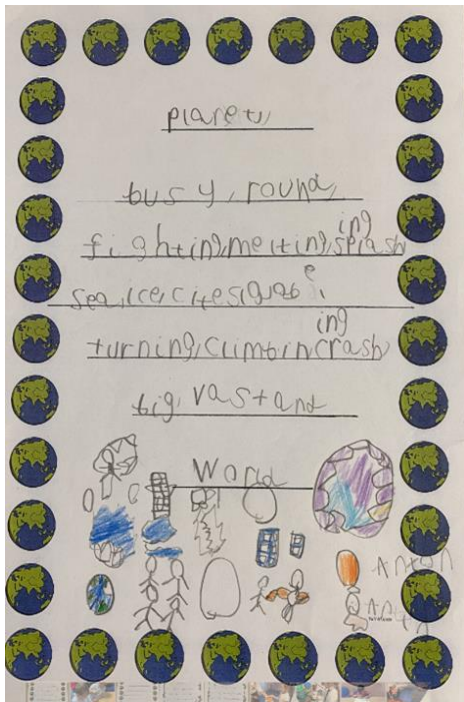 planet,
busy, round,
fighting, melting, splashing
sea, ice, cites, globe,
turning, climbin crashing
big, vast and
World
Anton